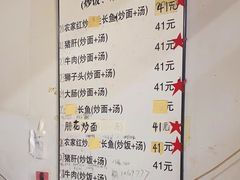 (炒饭、
农家红炒 长鱼(炒面+汤) 41元
猪肝(炒面+汤) 41元
牛肉(炒面+汤) 41元
狮子头(炒面+汤) 41元
大肠(炒面+汤) 41元
长鱼(炒面+汤) 41元
腰花炒面 41元
农家红炒 长鱼(炒饭+汤) 41元
猪肝(炒饭+汤) 41元
牛肉(炒饭+汤) 41元